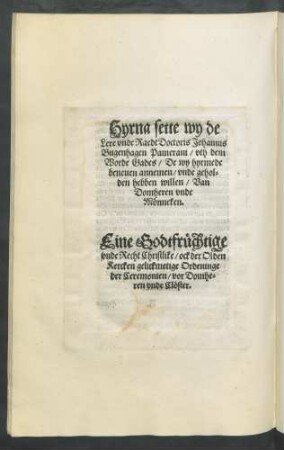 Hyrna sette wy de
Lere vnde Raedt Doctoris Johannis
Bugenhagen Pamerani / vth dem
Worde Gades / De wy hyrmede
beneuen annemen / vnde gehol-
den hebben willen / Van
Domheren vnde
Mönneken.
Eine Godtfrüchtige
vnde Recht Christlike / ock der Olden
Kercken gelickmetige Ordeninge
der Ceremonien / vor Domhe-
ren vnde Clöster.